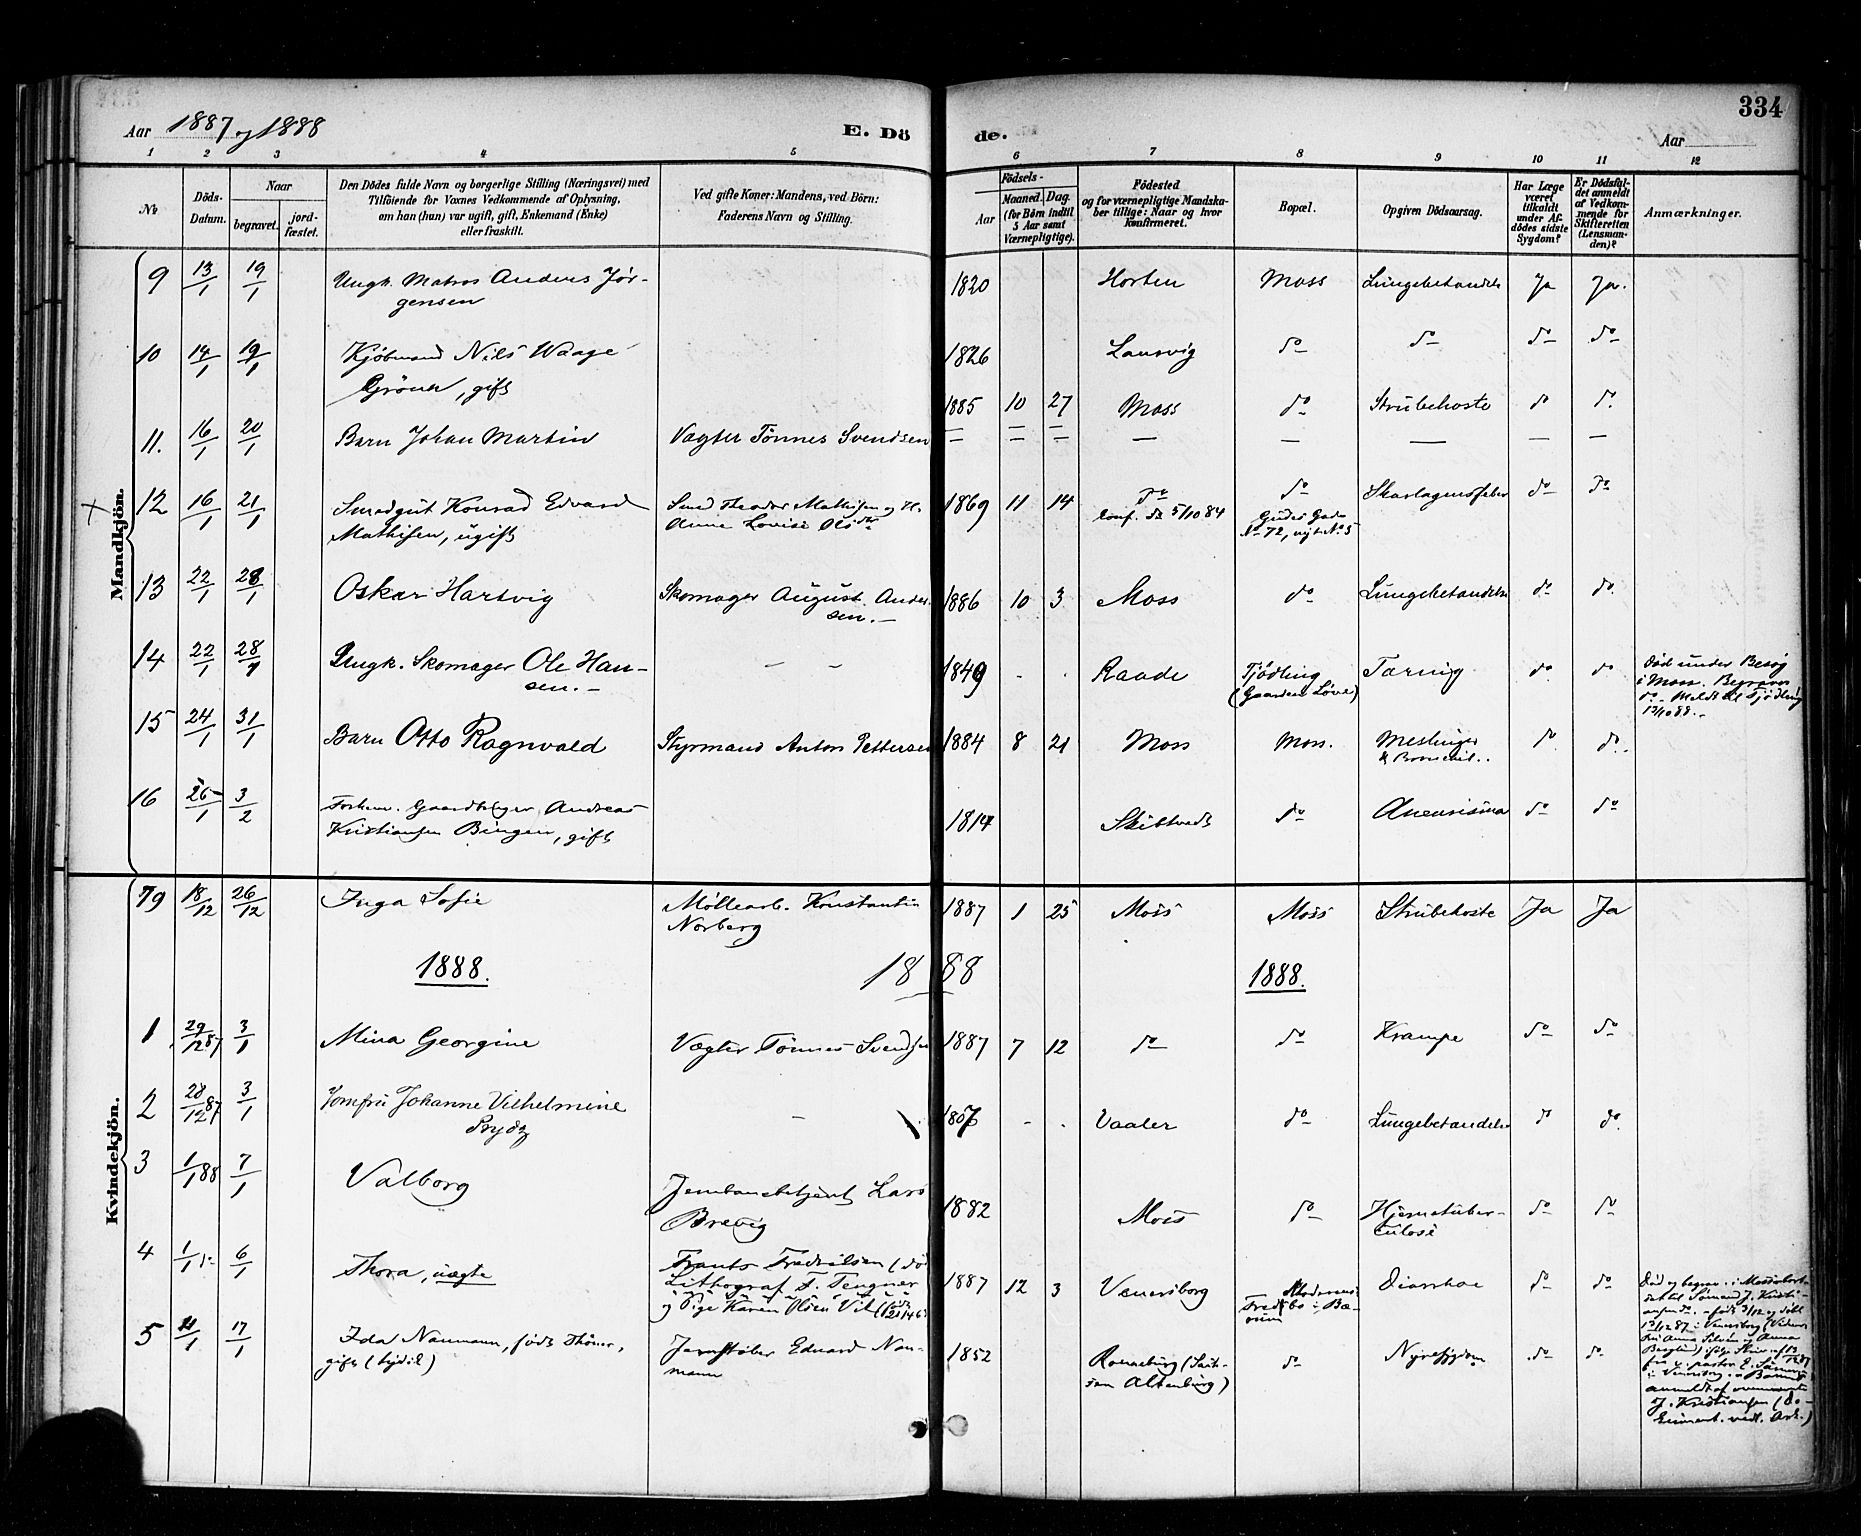 334
Aar 1887 og 1888
E. Dö
de.
Aar
1 2 3 4 5 6 7 8 9 10 11 12
No
Döds-Datum.
Naar
begravet.
jord-fæstet.
Den Dödes fulde Navn og borgerlige Stilling (Næringsvei) med
Tilföiende for Voxnes Vedkommende af Oplysning,
om han (hun) var ugift, gift, Enkemand (Enke)
eller fraskilt.
Ved gifte Koner: Mandens, ved Börn:
Faderens Navn og Stilling.
Födsels-
Aar
Maaned. Dag.
(for Börn indtil
5 Aar samt
Værnepligtige).
Födested
og for værnepligtige Mandska-
ber tillige: Naar og hvor
konfirmeret.
Bopæl.
Opgiven Dödsaarsag.
Har Læge
været
tilkaldt
under Af-
dödes sidste
Sygdom?
Er Dödsfal-
det anmeldt
af Vedkom-
mende for
Skifteretten
(Lensman-
den)?
Anmærkninger.
Mandkjön.
9 13/1 19/1 Ungk. Matros Anders Jör-
gensen
1820 Horten Moss Lungebetændels Ja Ja.
10 14/1 19/1 Kjöbmand Nils Waage
Grönn, gift
1826 Laurvig do do do do
11. 16/1 20/1 Barn Johan Martin Vægter Tönnes Svendsen
1885 10 27 Moss do Strubehoste do do
12 16/1 21/1 Smedgut Konrad Edvard
Mathisen, ugift
Smed Theodor Mathisen og H.
Anne Lovise Olsdtr
1869 11 14 do
conf. do 5/10 84
do
Gudes Gade
No 72, nyt No 5
Skarlagensfeber do do
13 22/1 28/1 Oskar Hartvig Skomager August Ander-
sen.
1886 10 3 Moss do Lungebetændelse do do.
14 22/1 28/1 Ungk. Skomager Ole Han-
sen.
1849 Raade Tjödling
(Gaarden Löve)
Tæring do do
Död under Besög
i Moss. Begraves
do. Meldt til Tjödling
15 24/1 31/1 Barn Otto Ragnvald Styrmand Anton Pettersen 1884 8 21 Moss Moss. Meslinger
do do.
16 26/1 3/2 Forhenv. Gaardbruger Andreas
Kristiansen Bingen, gift
1814 Skibtvedt do Aneurisma do do
Kvindekjön.
79 18/12 26/12 Inga Sofie Möllearb. Konstantin
Norberg
1887 1 25 Moss Moss Strubehoste Ja Ja
1888. 1888 1888.
1 29/12 87 3/1 Mina Georgine Vægter Tönnes Svendsen 1887 7 12 do do Krampe do do
2 28/12 87 3/1 Jomfru Johanne Vilhelmine
Prydz
1807 Vaaler do Lungebetændelse do do.
3 1/1 88 7/1 Valborg Jernbanebetjent Lars
Brevig
1882 Moss do Hjernetuber-
culose do do
4 1/1 6/1 Thora, uægte Frants Fredriksen (
Lithograf F. Tengner
og Pige Karen Olsen
1887 12 3 Venersborg Moderens:
Fredbo i Bæ-
rum
Diarrhoe do do
Död og begrav. i Moss
5 11/1 17/1 Ida Naumann, födt Thöner,
gift (tydil)
Jernstöber Eduard Nau-
mann
1852 Ronneburg (Sach-
sen Altenburg)
do Nyresygdom do do